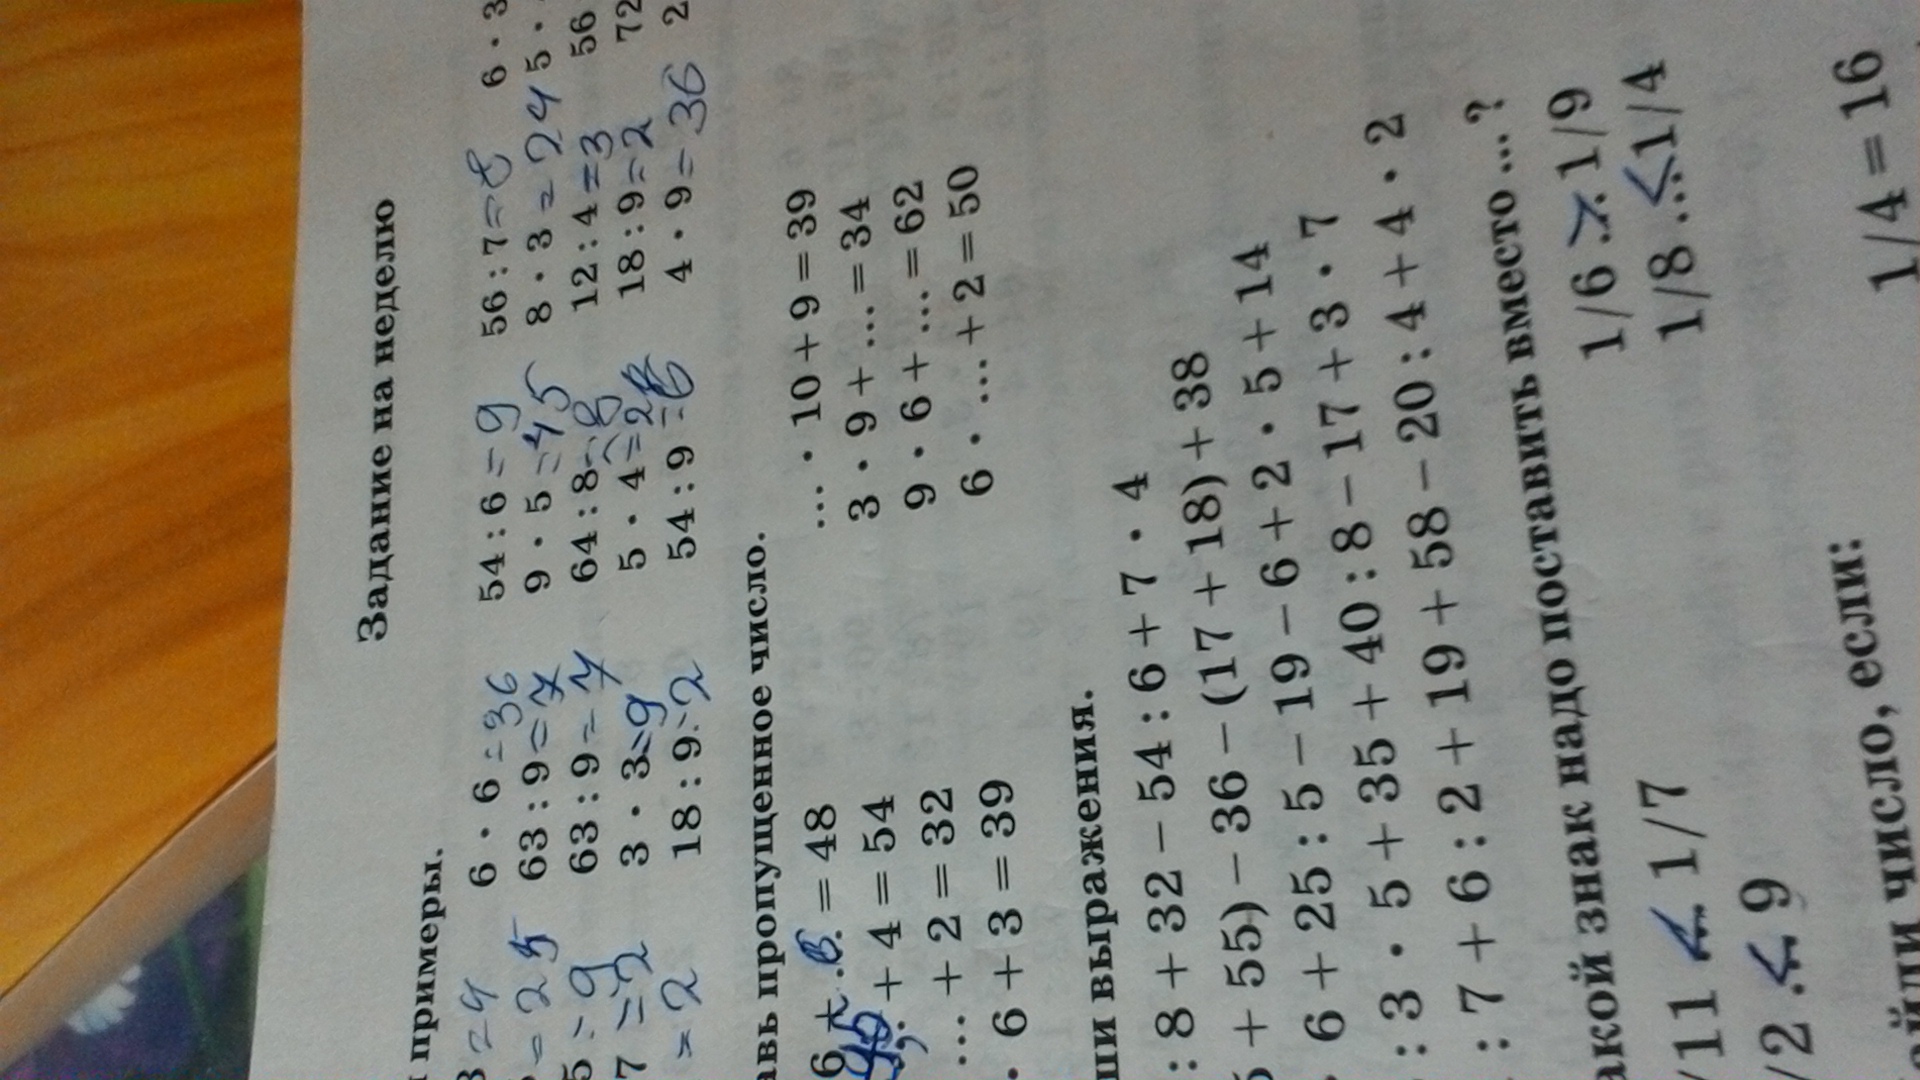 Задание на неделю
примеры.
3 = 4 6 · 6 = 36 54 : 6 = 9 56 : 7 = 8 6 · 3
= 25 63 : 9 = 7 9 · 5 = 45 8 · 3 = 24 5 ·
5 = 9 63 : 9 = 7 64 : 8 = 8 12 : 4 = 3 56
7 = 2 3 · 3 = 9 5 · 4 = 20 18 : 9 = 2 72
= 2 18 : 9 = 2 54 : 9 = 6 4 · 9 = 36 2
авь пропущенное число.
6 = 48 ... · 10 + 9 = 39
+ 4 = 54 3 · 9 + ... = 34
... + 2 = 32 9 · 6 + ... = 62
· 6 + 3 = 39 6 · ... + 2 = 50
ши выражения.
: 8 + 32 − 54 : 6 + 7 · 4
5 + 55) − 36 − (17 + 18) + 38
· 6 + 25 : 5 − 19 − 6 + 2 · 5 + 14
: 3 · 5 + 35 + 40 : 8 − 17 + 3 · 7
: 7 + 6 : 2 + 19 + 58 − 20 : 4 + 4 · 2
акой знак надо поставить вместо ... ?
/11 < 1/7 1/6 > 1/9
/2 < 9 1/8 < 1/4
айди число, если:
1/4 = 16